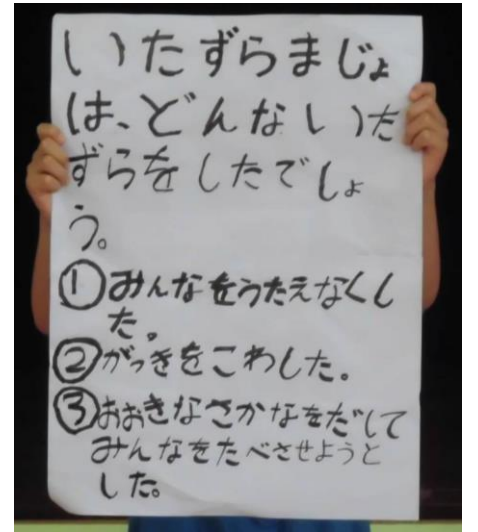 いたずらまじょ
は、どんないた
ずらをしたでしょ
う。
①みんなをうたえなくし
た。
②がっきをこわした。
③おおきなさかなをだして
みんなをたべさせようと
した。